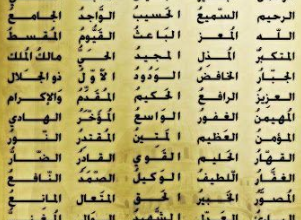 الرحيم السميع الحسيب الواجد الجامع
الله المعز الباعث القيوم المقسط
المتكبر المذل المجيد الحي مالك الملك
الجبار الخافض الودود الأول ذو الجلال
العزيز الرافع الحكيم المقدم والإكرام
المهيمن الغفور الواسع المؤخر الهادي
المؤمن العظيم المتين المقتدر النور
القهار الحليم القوي القادر الضار
الغفار اللطيف الوكيل الصمد النافع
المصور الخبير الحق المتعال المانع